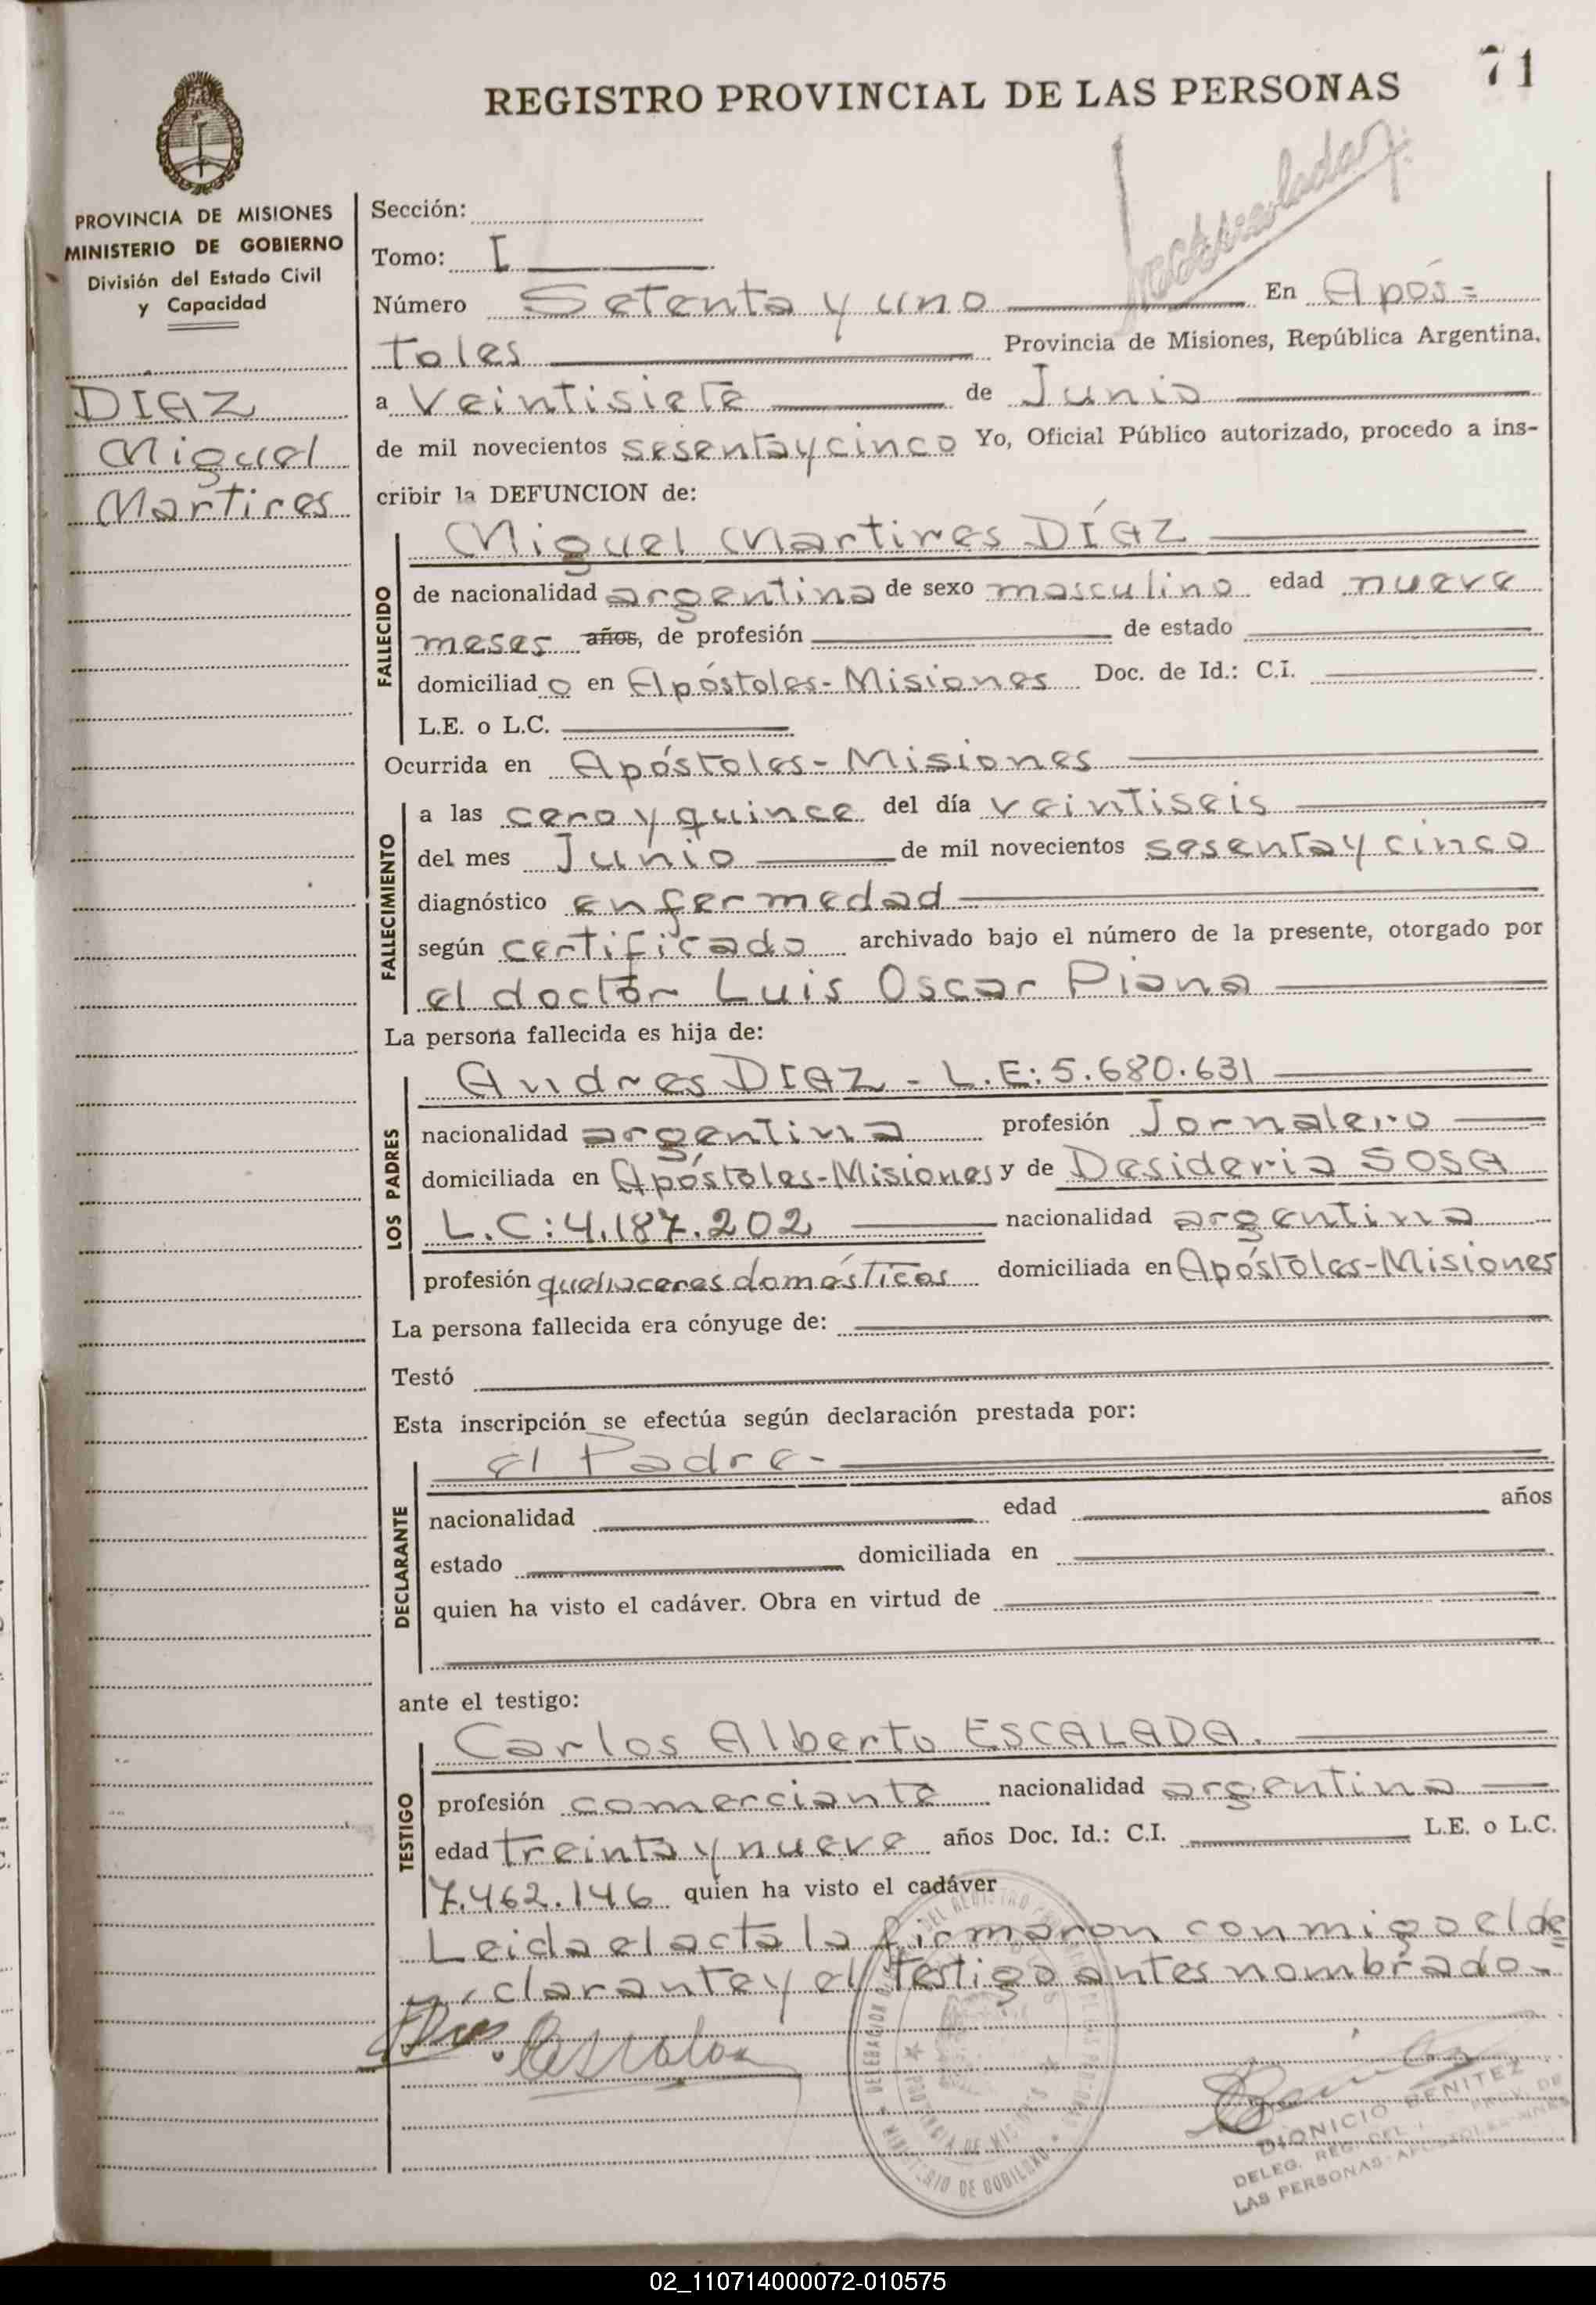 REGISTRO PROVINCIAL DE LAS PERSONAS
71
PROVINCIA DE MISIONES
MINISTERIO DE GOBIERNO
División del Estado Civil
y Capacidad
DIAZ
Miguel
Martires
Sección:
Tomo: I
Número Setenta y uno En Após=
toles Provincia de Misiones, República Argentina,
a Veintisiete de Junio
de mil novecientos sesenta y cinco Yo, Oficial Público autorizado, procedo a ins-
cribir la DEFUNCION de:
FALLECIDO
Miguel Martires DÍAZ
de nacionalidad argentina de sexo masculino edad nueve
meses años, de profesión de estado
domiciliad o en Apóstoles-Misiones Doc. de Id.: C.I.
L.E. o L.C.
Ocurrida en Apóstoles-Misiones
FALLECIMIENTO
a las cero y quince del día veintiseis
del mes Junio de mil novecientos sesenta y cinco
diagnóstico enfermedad
según certificado archivado bajo el número de la presente, otorgado por
el doctor Luis Oscar Piana
La persona fallecida es hija de:
LOS PADRES
Andres DIAZ - L.E: 5.680.631
nacionalidad argentina profesión Jornalero
domiciliada en Apóstoles-Misiones y de Desideria SOSA
L.C: 4.187.202 nacionalidad argentina
profesión quehaceres domésticos domiciliada en Apóstoles-Misiones
La persona fallecida era cónyuge de:
Testó
Esta inscripción se efectúa según declaración prestada por:
DECLARANTE
el Padre-
nacionalidad edad años
estado domiciliada en
quien ha visto el cadáver. Obra en virtud de
ante el testigo:
TESTIGO
Carlos Alberto ESCALADA.
profesión comerciante nacionalidad argentina
edad treinta y nueve años Doc. Id.: C.I. L.E. o L.C.
7.462.146 quien ha visto el cadáver
Leida el acta la firmaron conmigo el de
clarante y el testigo antes nombrado-
DIONICIO BENITEZ
DELEG. REG. DEL PROV. DE
LAS PERSONAS-APOSTOLES-MNES
02_110714000072-010575